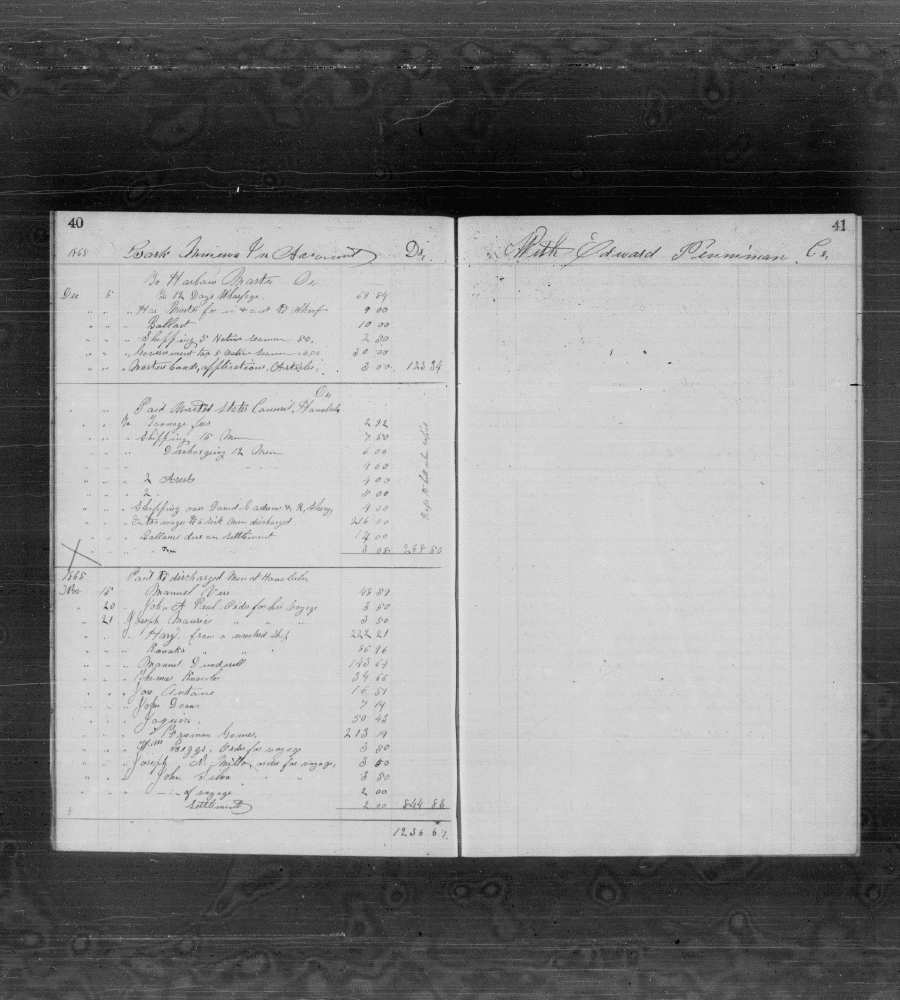 40
1868 Bark Minerva In Account Dr.
To Harbour Master Dr
Dec 5 To 12 Days Wharfage 68 84
" " " Har Master for in & out & Wharf 9 00
" " " Ballast 10 00
" " " Shipping 5 Native seamen 50. 2 50
" " " Government tax 5 Native Seamen 6.00 30 00
" " " Masters bonds, applications, Articles 3 00 123 34
Dr.
" " Paid United States Counsul, Honolulu
" " " To Tonnage fees 2 92
" " " Shipping 15 Men 7 50
" " " Discharging 12 Men 6 00
" " " 4 00
" " " 2 Arests 4 00
" " " 2 " 8 00
" " " Shipping one David & adam & 4 00
" " " wages to 6 sick Men discharged 216 00
" " " Ballance due on settlement 12 00
" " " 3 08 268 50
1868 Paid to discharged Men at Honolulu
Nov 15 Manuel 48 89
" 20 John A Paul. Order for his Voyage 3 50
" 21 Joseph Maurice " " " 3 50
" " " Harry, from a wrecked ship 222 21
" " " Kanaka " " " 86 96
" " " Manuel 143 64
" " " Thomas 34 66
" " " Jos Antone 16 51
" " " John Doan 7 19
" " " Jaquin. 50 43
" " " Freeman Gomes 213 19
" " " Wm Boggs, Order for voyage 3 50
" " " Joseph N. order for voyage, 3 50
" " " John Silva " " 3 50
" " " of voyage 2 00
Settlement 2 00 844 83
1236 67
41
With Edward Penniman Cr.